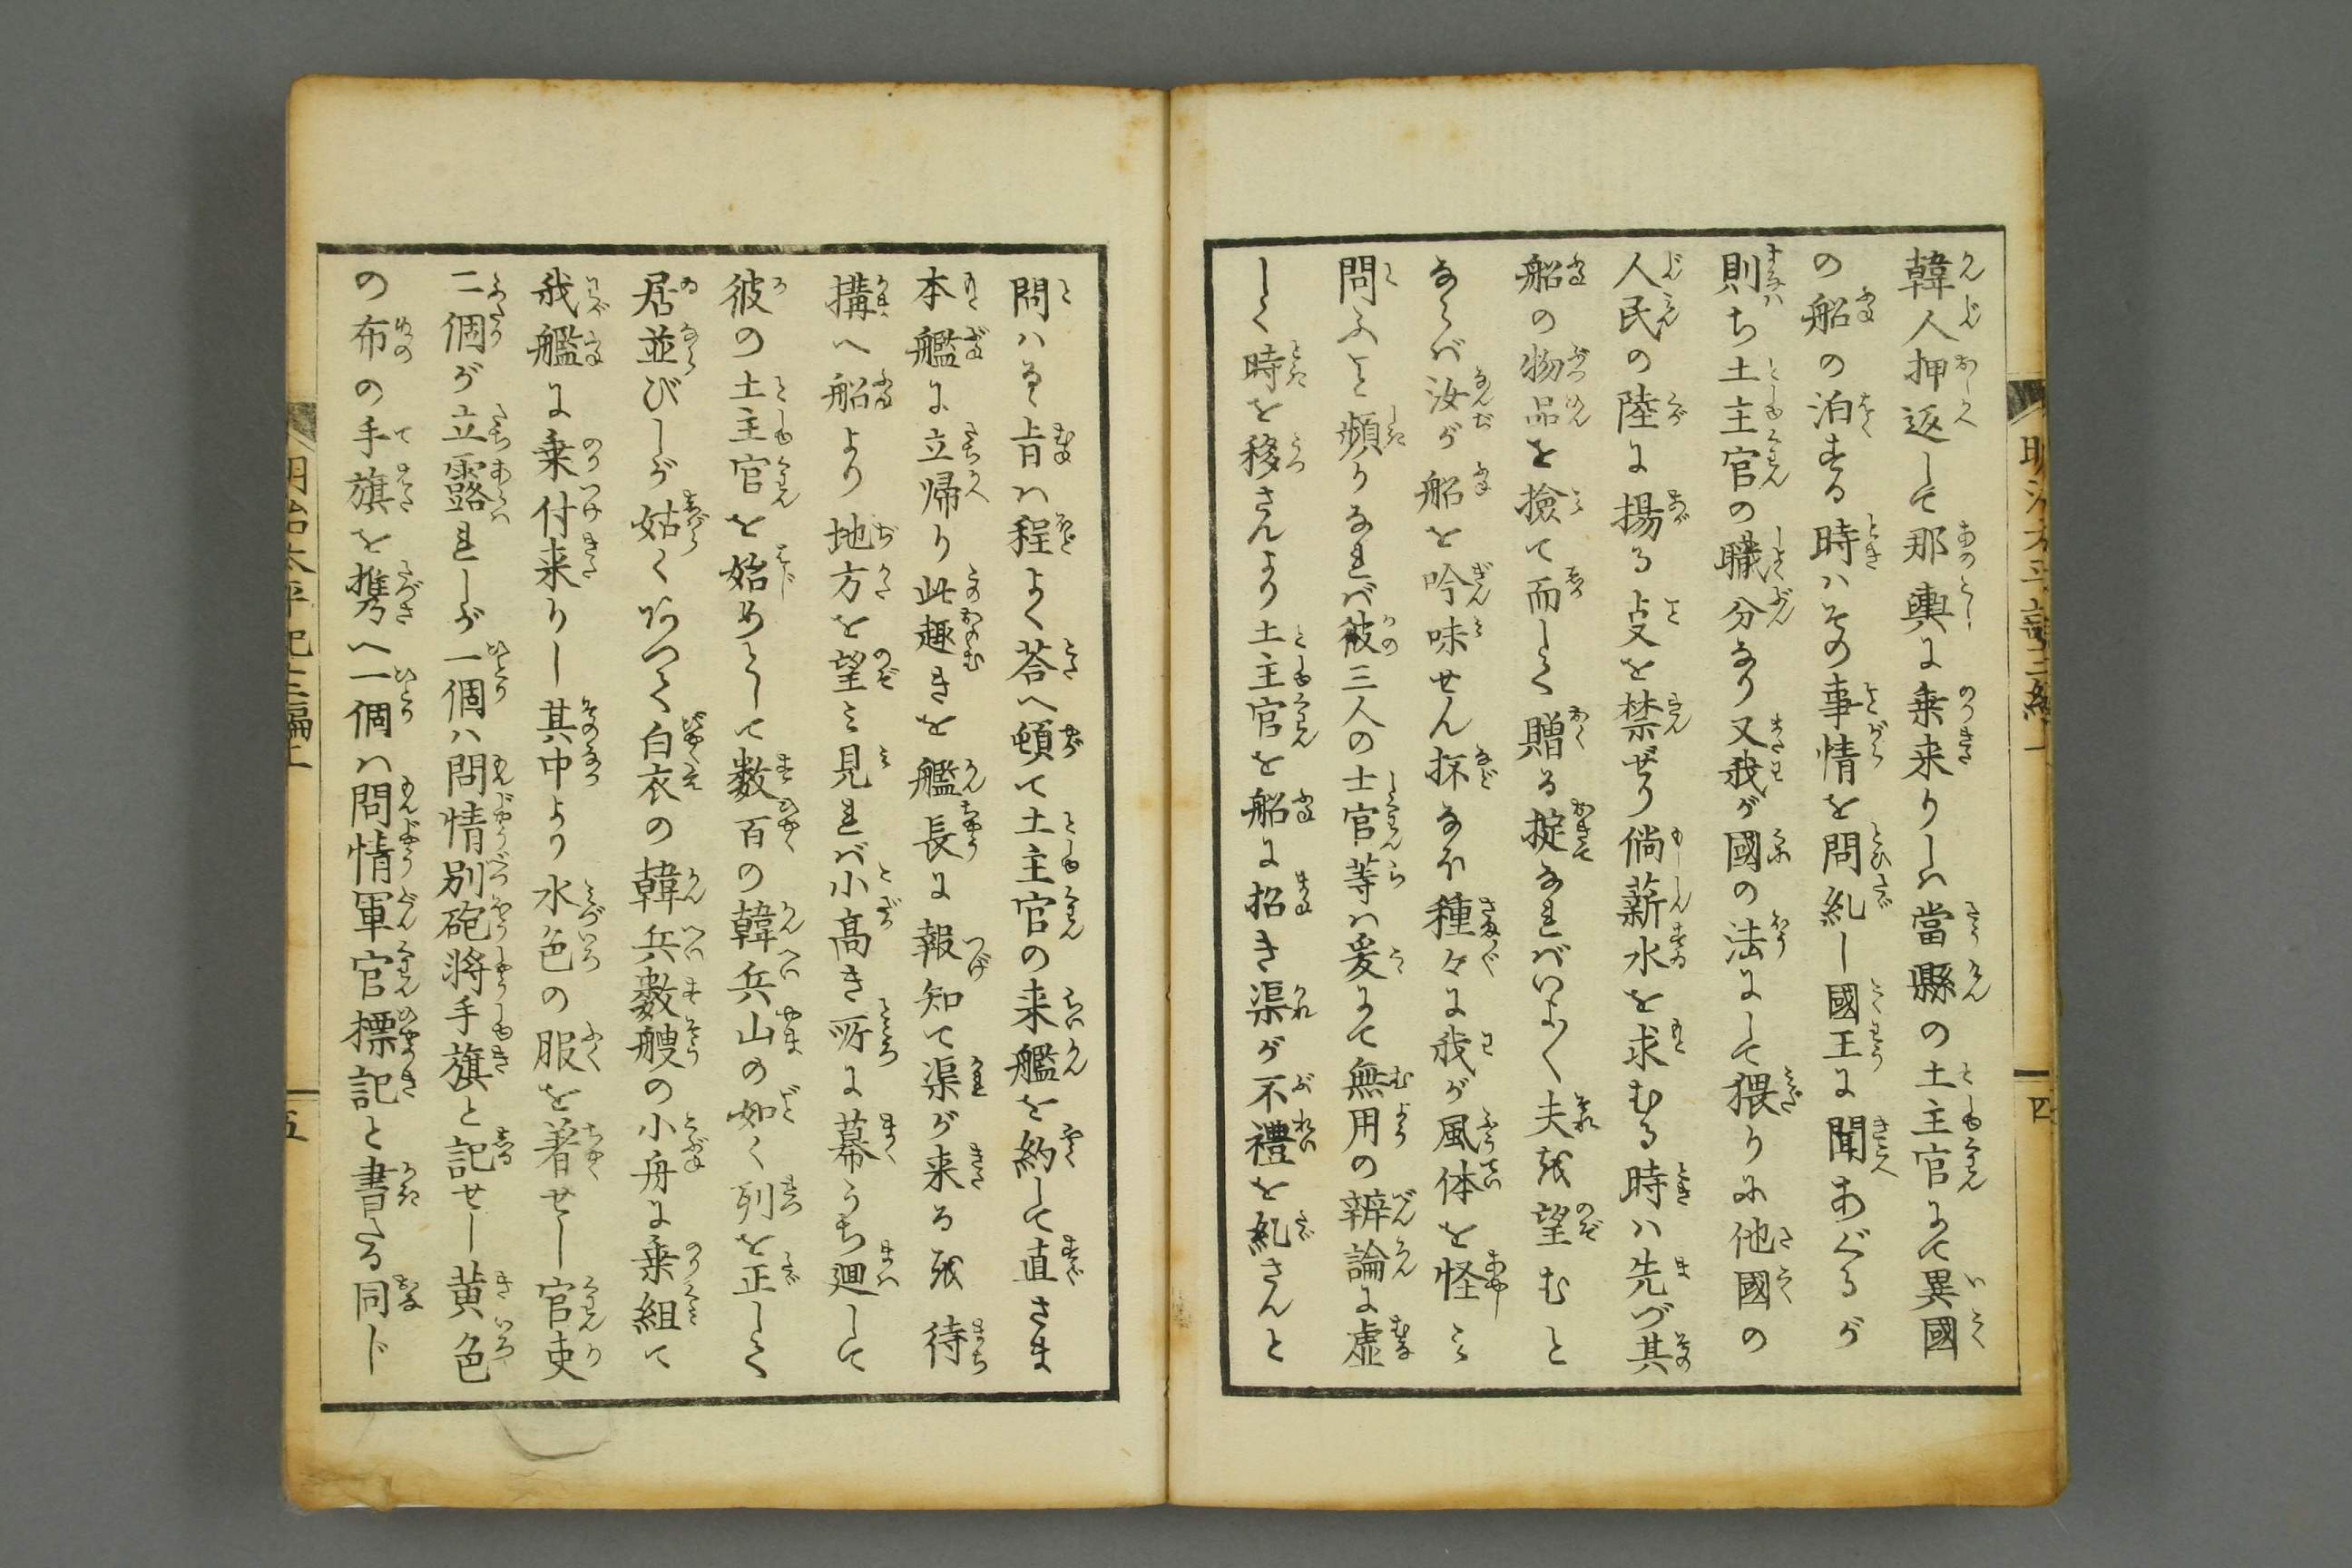 韓人押返して那輿に乗来りしハ當縣の土主官にて異國
の船の泊する時ハその事情を問糺し國王に聞あぐるが
則ち土主官の職分なり又我が國の法にして猥りに他國の
人民の陸に揚る叓を禁ぜり倘薪水を求むる時ハ先づ其
船の物品を撿て而して贈る掟なればいよ〱夫を望むと
ならバ汝が船を吟味せん抔なほ種々に我が風体を怪ミ
問ふこと頻りなれバ彼三人の士官等ハ爰にて無用の辨論に虚
しく時を移さんより土主官を船に招き渠が不禮を糺さんと
問ハるゝ旨ハ程よく荅へ頓て土主官の来艦を約して直さま
本艦に立帰り此趣きを艦長に報知て渠が来るを待
搆へ船より地方を望ミ見れバ小高き所に幕うち廻して
彼の土主官を始めとして数百の韓兵山の如く列を正して
居並びしが姑くありて白衣の韓兵數艘の小舟に乗組て
我艦に乗付来りし其中より水色の服を著せし官吏
二個が立露れしが一個ハ問情別砲将手旗と記せし黄色
の布の手旗を携へ一個ハ問情軍官標記と書たる同じ
明治太平記三編上
四
明治太平記三編上
五